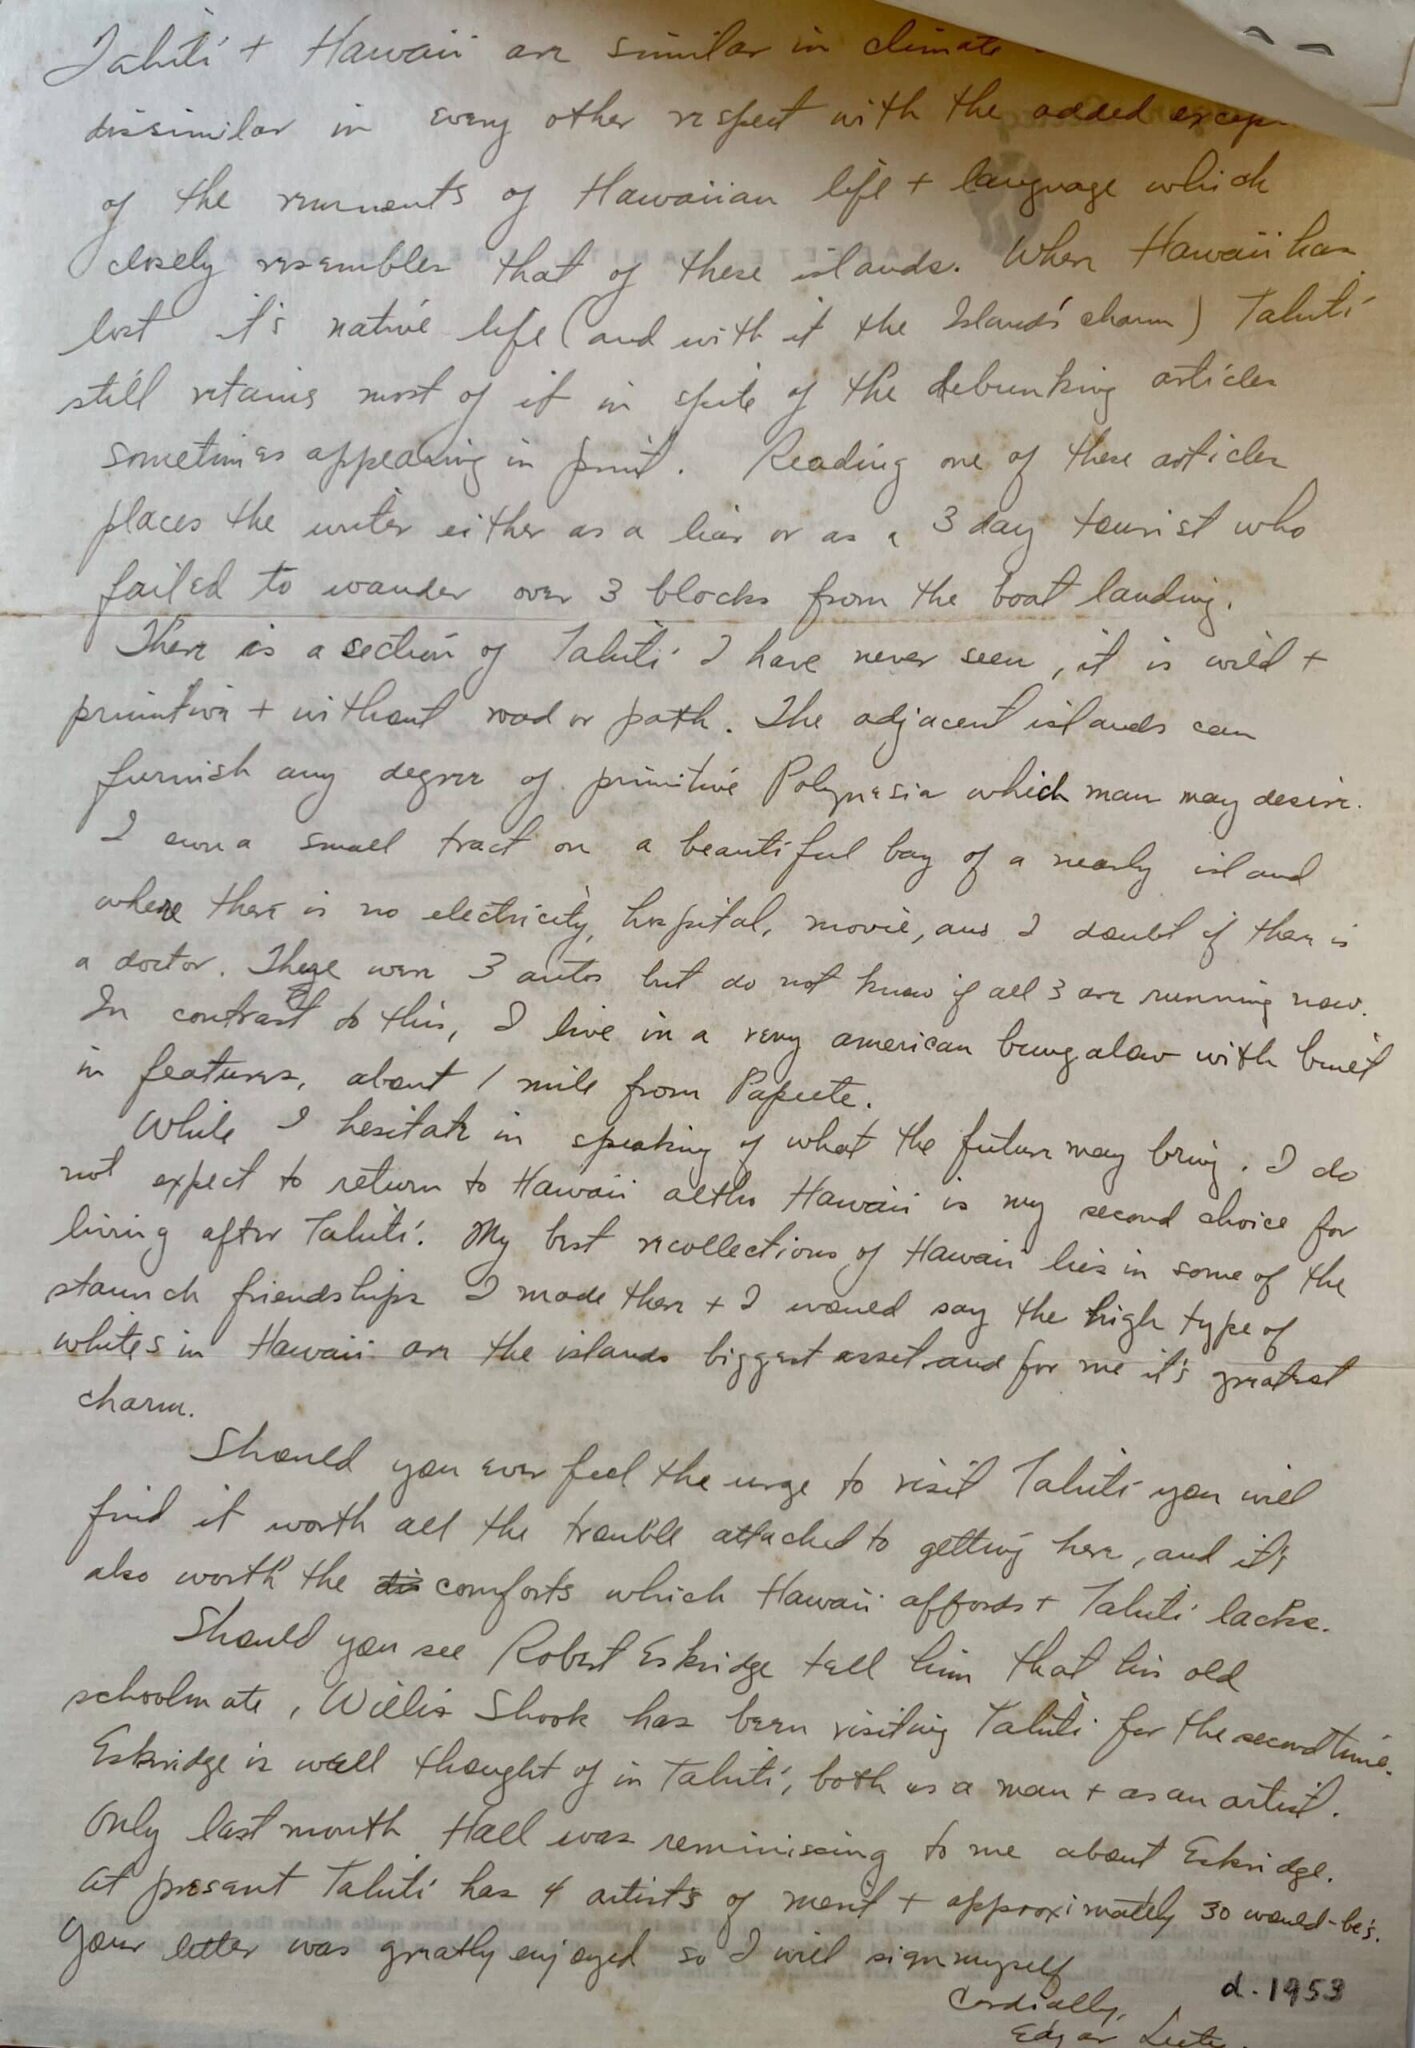 Tahiti + Hawaii are similar in climate
dissimilar in every other respect with the added excep
of the remnents of Hawaiian life + language which
closely resembles that of these islands. When Hawaii has
lost it's native life (and with it the Island's charm) Tahiti
still retains most of it in spite of the debunking articles
sometimes appearing in print. Reading one of these articles
places the writer either as a liar or as a 3 day tourist who
failed to wander over 3 blocks from the boat landing.
There is a section of Tahiti I have never seen, it is wild +
primitive + without road or path. The adjacent islands can
furnish any degree of primitive Polynesia which man may desire.
I own a small tract on a beautiful bay of a nearby island
where there is no electricity, hospital, movie, and I doubt if there is
a doctor. There were 3 autos but do not know if all 3 are running now.
In contrast to this, I live in a very american bungalow with built
in features, about 1 mile from Papeete.
While I hesitate in speaking of what the future may bring. I do
not expect to return to Hawaii altho Hawaii is my second choice for
living after Tahiti. My best recollections of Hawaii lies in some of the
staunch friendships I made there + I would say the high type of
whites in Hawaii are the islands biggest asset and for me it's greatest
charm.
Should you ever feel the urge to visit Tahiti you will
find it worth all the trouble attached to getting here, and it's
also worth the comforts which Hawaii affords + Tahiti lacks.
Should you see Robert Eskridge tell him that his old
schoolmate, Willis Shook has been visiting Tahiti for the second time.
Eskridge is well thought of in Tahiti, both as a man + as an artist.
Only last month Hall was reminiscing to me about Eskridge.
At present Tahiti has 4 artists of merit + approximately 30 would-be's.
Your letter was greatly enjoyed so I will sign myself
Cordially,
d. 1953
Edgar